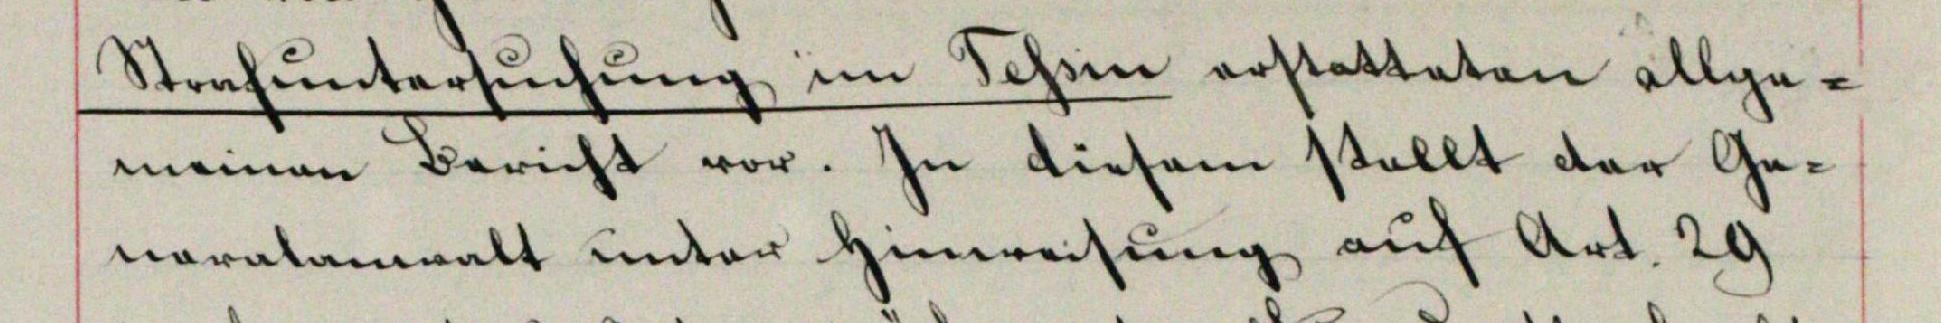 Strafuntersuchung im Tessin erstatteten allge=
meinen Bericht vor. In diesem stellt der Ge=
neralanwalt unter Hinweisung auf Art. 29